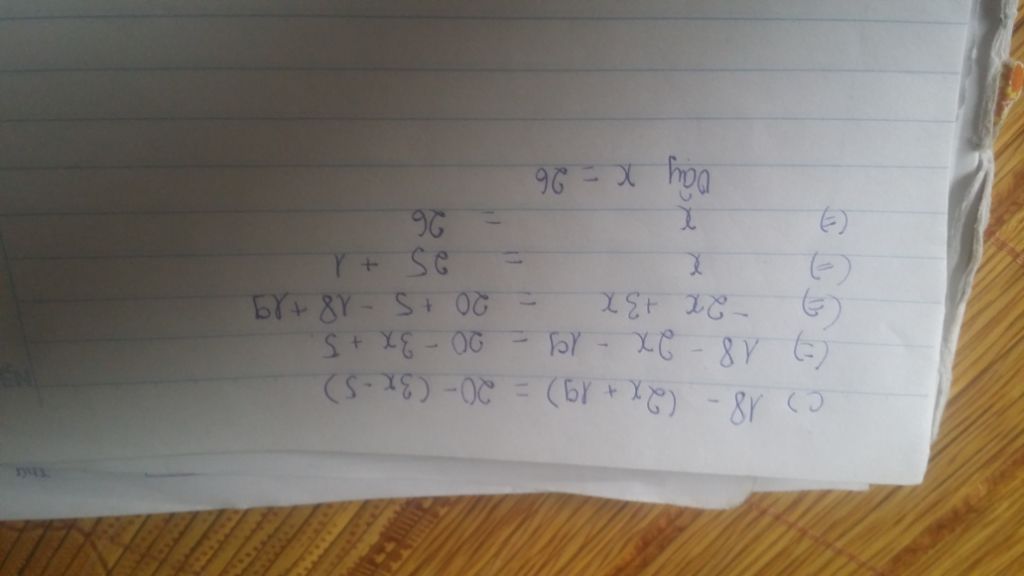 c) 18 - (2x + 19) = 20 - (3x - 5)
(=) 18 - 2x - 19 = 20 - 3x + 5
(=) -2x + 3x = 20 + 5 - 18 + 19
(=) x = 25 + 1
(=) x = 26
Vậy x = 26
Thứ